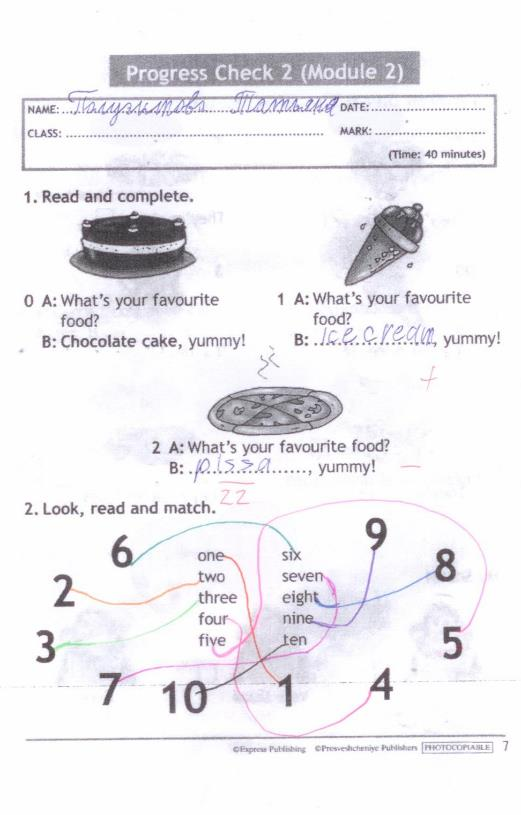 Progress Check 2 (Module 2)
NAME: Полузитова Татьяна DATE:
CLASS: MARK:
(Time: 40 minutes)
1. Read and complete.
0 A: What's your favourite food?
B: Chocolate cake, yummy!
1 A: What's your favourite food?
B: ice cream, yummy!
+
2 A: What's your favourite food?
B: pissa, yummy! −
zz
2. Look, read and match.
6 one six 9
2 two seven 8
three eight
3 four nine 5
five ten
7 10 1 4
©Express Publishing ©Prosveshcheniye Publishers PHOTOCOPIABLE 7